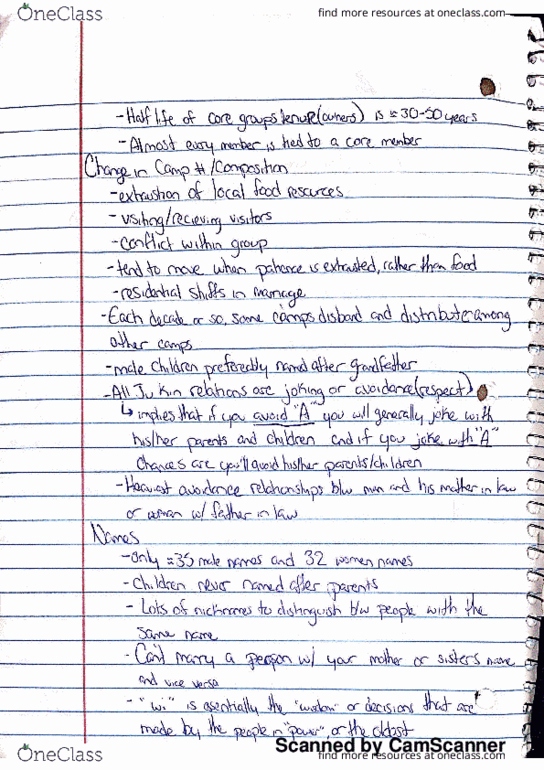 OneClass
find more resources at oneclass.com
-Half life of core groups tenure(owners) is ≈30-50 years
-Almost every member is tied to a core member
Change in Camp #/Composition
-extraustion of local food resources
-visiting/recieving visitors
-conflict within group
-tend to move when patience is extrausted, rather than food
-residential shifts in marriage
-Each decade or so, some camps disband and distribute among
other camps
-male children preferebly named after grandfather
-All Ju Kin relations are joking or avoidance(respect)
↳ implies that if you avoid "A" you will generally joke with
his/her parents and children and if you joke with "A"
Chances are you'll avoid his/her parents/children
-Heaviest avoidance relationships b/w man and his mother in law
or woman w/ father in law
Names
-only ≈35 male names and 32 women names
-children never named after parents
- Lots of nicknames to distinguish b/w people with the
same name
- Can't marry a person w/ your mother or sister's name
and vice versa
- "wi" is esentially the "wisdom" or decisions that are
made by the people in "power", or the oldest
Scanned by CamScanner
OneClass
find more resources at oneclass.com